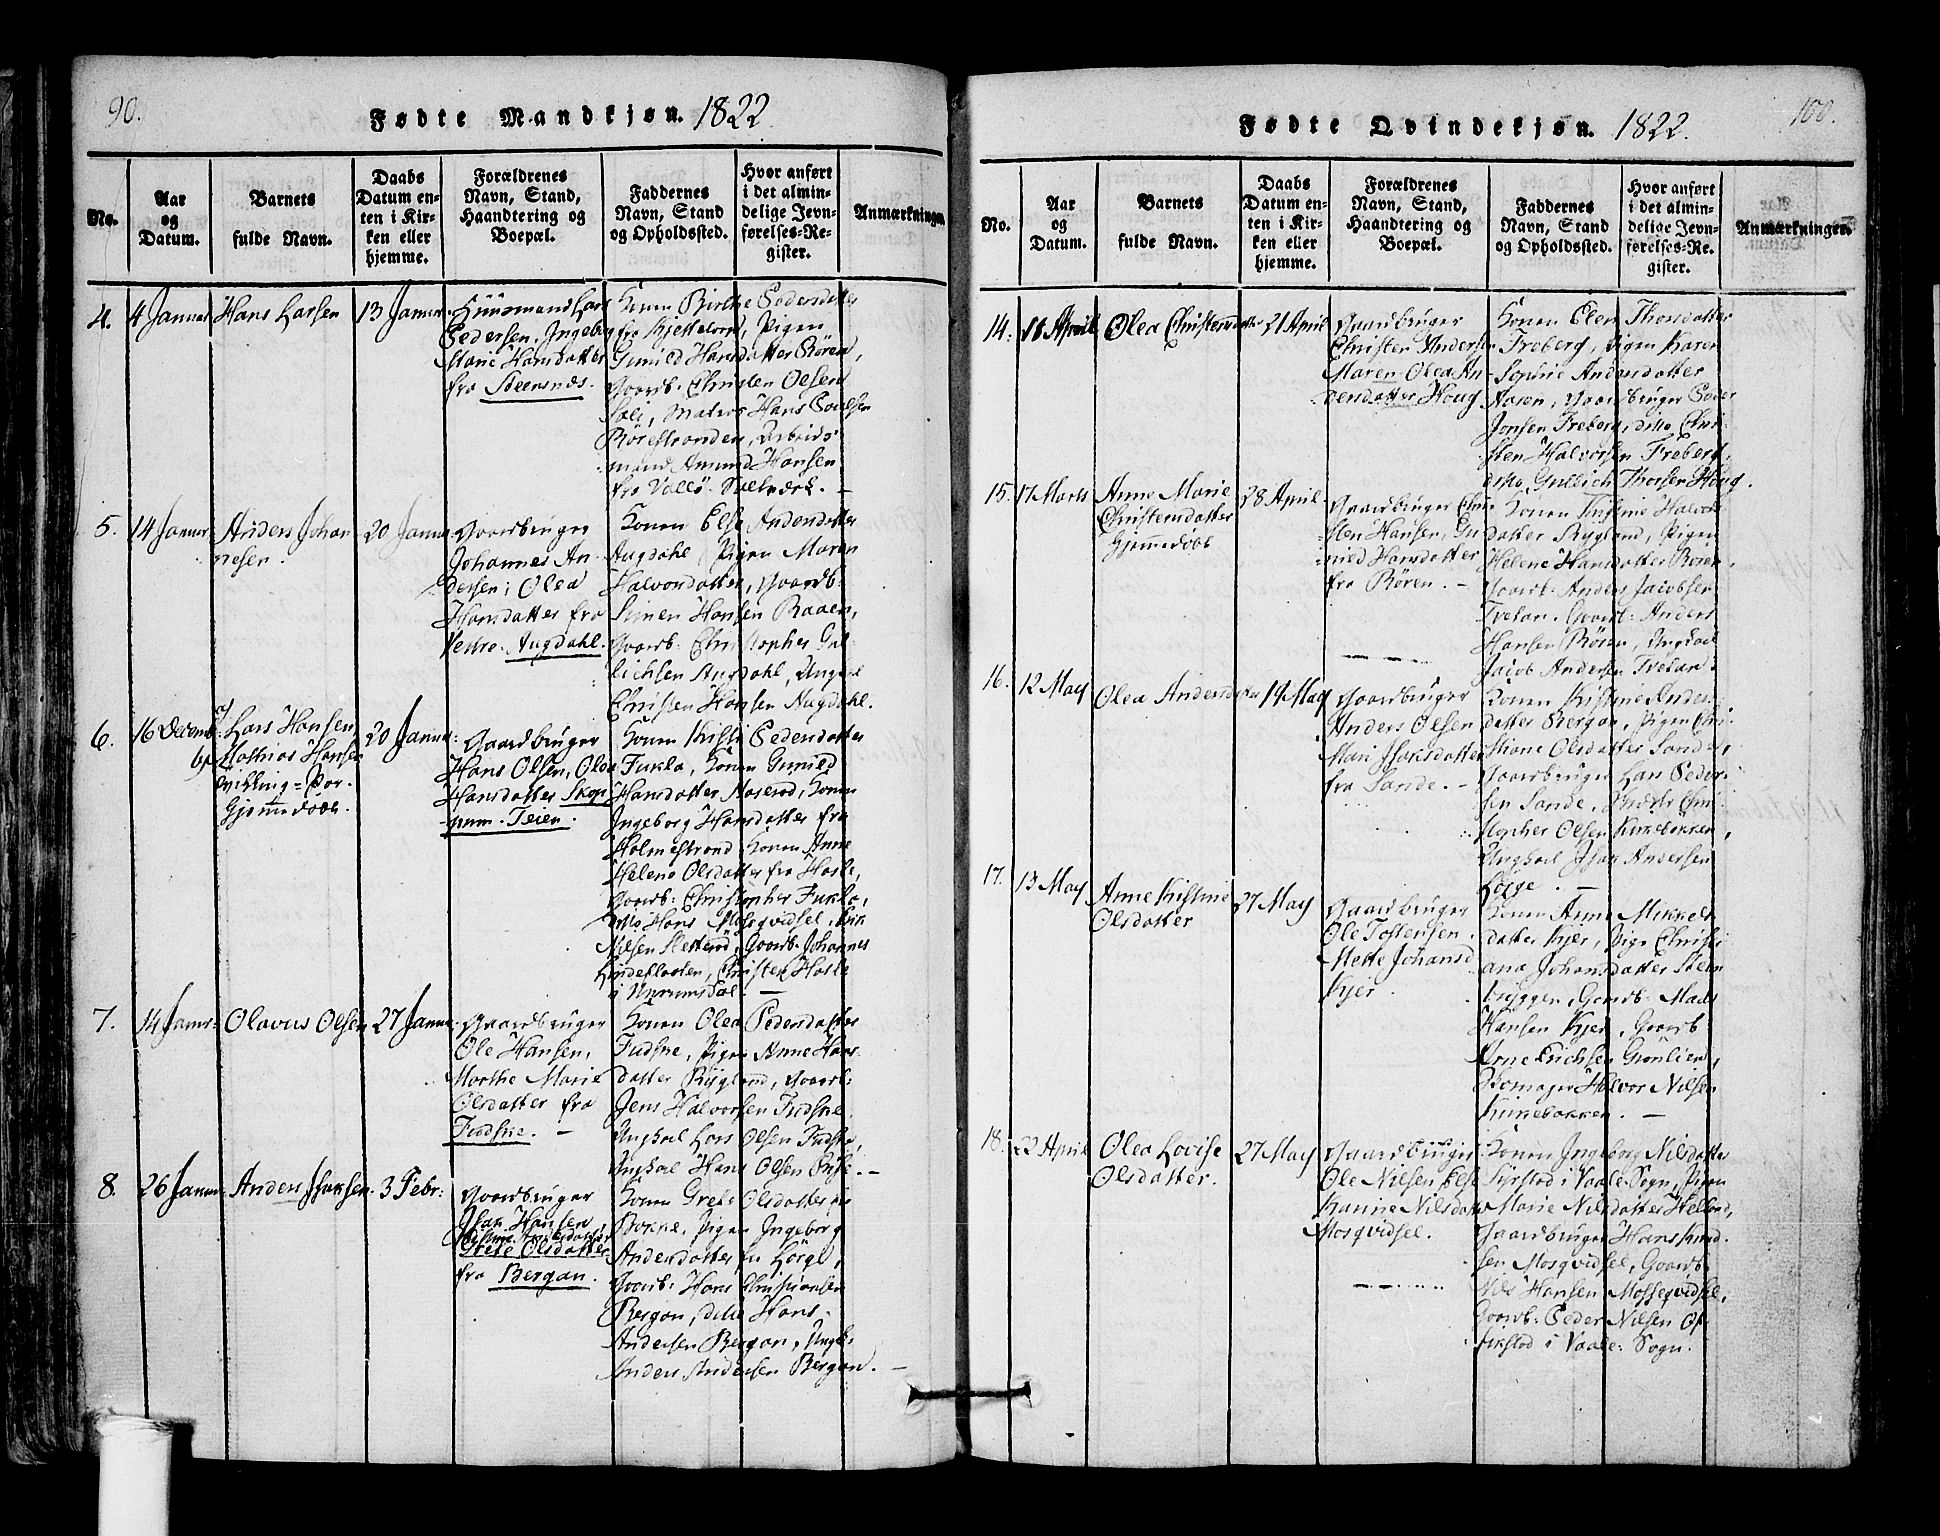 90.
Fødte Mandkjøn. 1822
No.
Aar
og
Datum.
Barnets
fulde Navn.
Daabs
Datum en-
ten i Kir-
ken eller
hjemme.
Forældrenes
Navn, Stand,
Haandtering og
Boepæl.
Faddernes
Navn, Stand
og Opholdssted.
Hvor anført
i det almin-
delige Jevn-
førelses-Re-
gister.
Anmærkninger.
4.
4 Januar
Hans Larsen
13 Januar
Huusmand Lars
Pedersen, Ingeborg
Marie Hansdatter
fra Steensnæs.
Konen Birthe Pedersdatter
fra
Gunild Hansdatter Røren,
Gaardb: Christen Olsen
Matros Hans Poulsen
Rørestranden, Arbeids
mand Amund Hansen
fra Vallø Saltværk. -
5.
14 Januar
Anders Johan
nesen.
20 Januar
Gaardbruger
Johannes An
dersen, Olea
Hansdatter fra
Vestre Augdahl.
Konen Else Andersdatter
Augdahl, Pigen Maren
Halvorsdatter, Gaardb:
Simen Hansen Raaen,
Gaardb: Christopher Gul
lichsen Augdahl, Ungkarl
Christen Hansen Augdahl.
6.
16 Decemb:
Lars Hansen,
Mathias Hansen
Tvilling-Par.
Gjemmedøbt.
20 Januar
Gaardbruger
Hans Olsen, Olea
Hansdatter Skop
pum-Teien.
Konen Kisti Pedersdatter
Fukla, Konen Gunild
Hansdatter Aaserød, Konen
Ingeborg Hansdatter fra
Holmestrand, Konen Anne
Helene Olsdatter fra Hasle,
Gaardb: Christopher Fukla,
ditto Hans Mosqvidsel,
Nilsen Sletterød, Gaardb: Johannes
Lindefladen, Christen Hasle
i Unrumsdal. -
7.
14 Januar
Olavus Olsen
27 Januar
Gaardbruger
Ole Hansen,
Marthe Marie
Olsdatter fra
Fudske. -
Konen Olea Pedersdatter
Fudske, Pigen Anne Hans
datter Rygland, Gaardb:
Jens Halvorsen Fudske,
Ungkarl Lars Olsen Fudske
Ungkarl Hans Olsen -
8.
26 Januar
Anders Isaksen.
3 Febr:
Gaardbruger
Isak Hansen
Kistine Andersdatter
Grete Olsdatter
fra Bergan.
Konen Grete Olsdatter fra
Bokke, Pigen Ingeborg
Andersdatter fra
Gaardb: Hans Christiansen
Bergan, ditto Hans
Andersen Bergan, Ungk:
Anders Andersen Bergan. -
100.
Fødte Qvindekjøn. 1822.
No.
Aar
og
Datum.
Barnets
fulde Navn.
Daabs
Datum en-
ten i Kir-
ken eller
hjemme.
Forældrenes
Navn, Stand,
Haandtering og
Boepæl.
Faddernes
Navn, Stand
og Opholdssted.
Hvor anført
i det almin-
delige Jevn-
førelses-Re-
gister.
Anmærkninger.
14.
16 April
Olea Christensdatter
21 April
Gaardbruger
Christen Andersen
Maren Olea An
dersdatter Houg
Konen Elen Thorsdatter
Freberg, Pigen Karen
Sophie Andersdatter
Aasen, Gaardbruger Peder
Jonsen Freberg, ditto Chri-
sten Halvorsen Freberg,
ditto Gullich Thorsen Houg.
15.
17 Marts
Anne Marie
Christensdatter
Gjemmedøbt
28 April
Gaardbruger Chri
sten Hansen, Gu
nild Hansdatter
fra Røren. -
Konen Kistine Halvors
datter Rygland, Pigen
Helene Hansdatter Røren,
Gaardb: Anders Jacobsen
Tvetan, Gaardb: Anders
Hansen Røren, Ungkarl
Jacob Andersen Tvetan.
16.
12 May
Olea Andersdatter
19 May
Gaardbruger
Anders Olsen
Mari Isaksdatter
fra Sande. -
Konen Kistine Anders
datter Bergan, Pigen Chri
stiane Olsdatter Sande,
Gaardbruger Lars Peder
sen Sande, Chri
stopher Olsen Kirkebakken,
Ungkarl Isak Andersen
. -
17.
13 May
Anne Kistine
Olsdatter
27 May
Gaardbruger
Ole Tostensen
Mette Johansd
Kjer.
Konen Anne Mikkels
datter Kjer, Pige Christi
ana Johansdatter Steen
bryggen, Gaardb: Mads
Hansen Kjer, Gaardb:
Arne Erichsen Grønlien,
Skomager Halvor Nilsen
Kirkebakken. -
18.
22 April
Olea Lovise
Olsdatter.
27 May
Gaardbruger
Ole Nilsen Else
Karine Nilsdatter
Mosqvidsel.
Konen Ingeborg Nilsdatter
Syrstod i Vaale Sogn, Pigen
Marie Nilsdatter Helland,
Gaardbruger Hans Knud
sen Mosqvidsel, Gaardb:
Nils Hansen Mosseqvidsel,
Gaardb: Peder Nilsen
i Vaale Sogn.